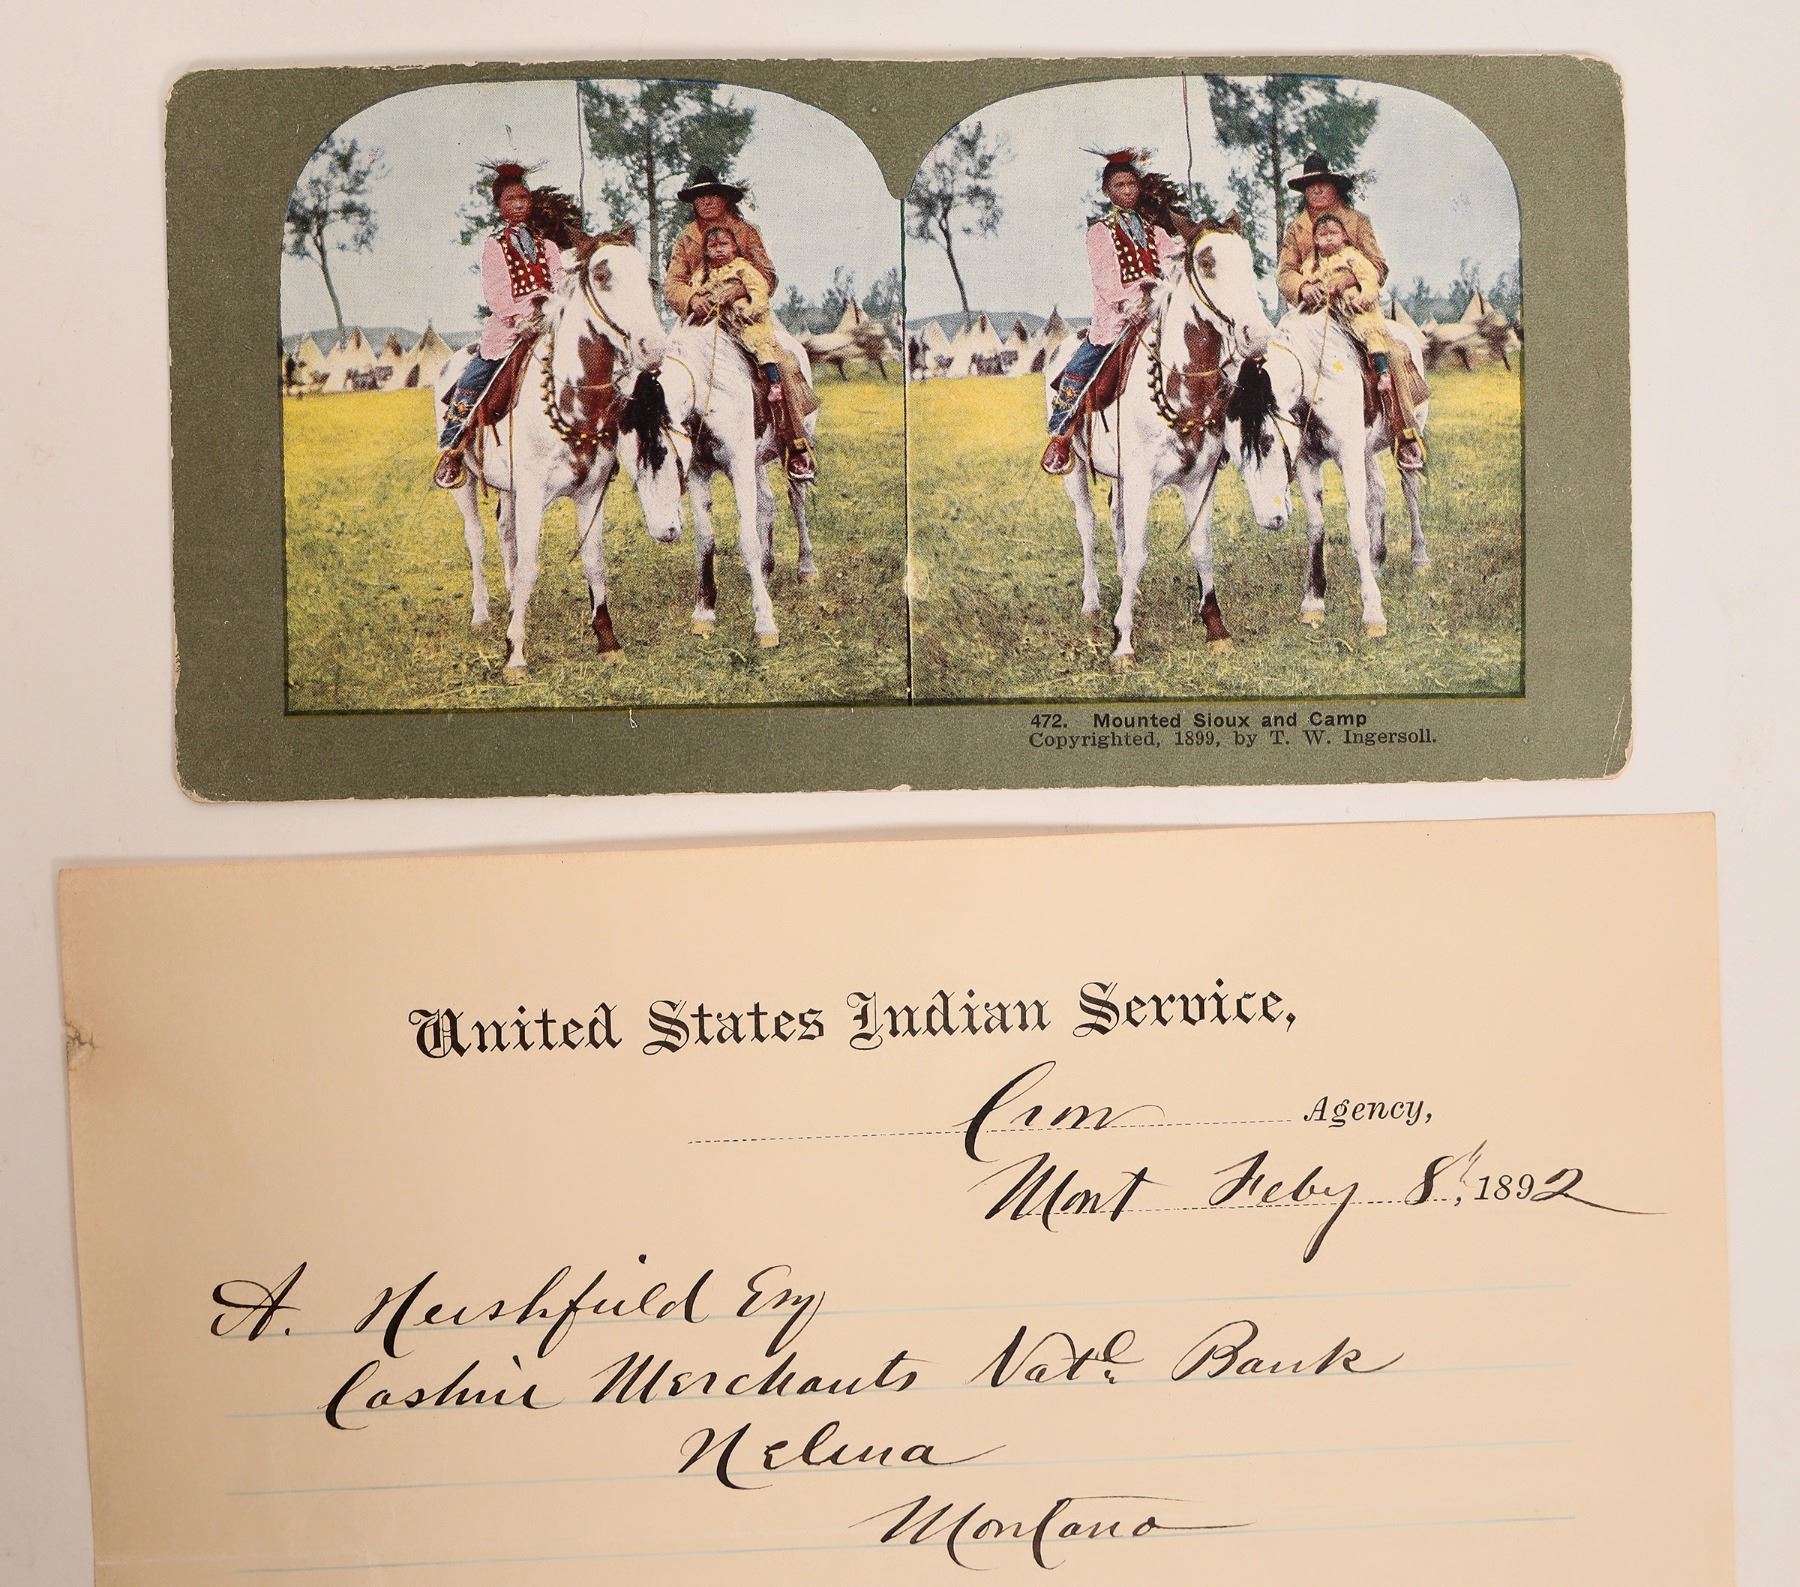 472. Mounted Sioux and Camp
Copyrighted, 1899, by T. W. Ingersoll.
United States Indian Service,
Crow Agency,
Mont Feby 8th, 1892
A. Hershfield Esq
Cashier Merchants Natl. Bank
Helena
Montana